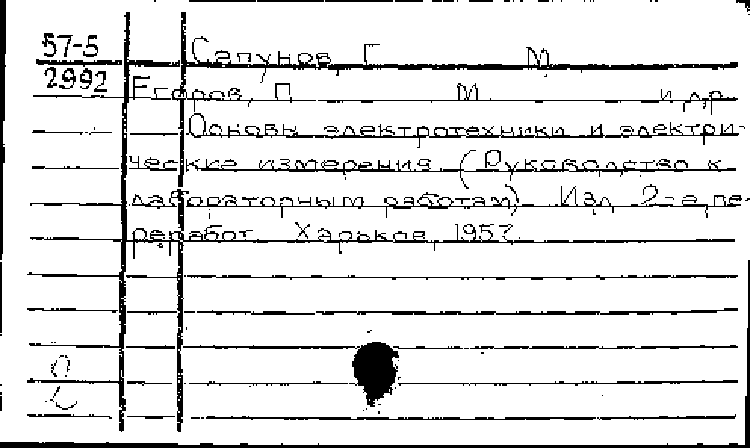 57-5 Сапунов, Г М
2992 Егоров, П М и др
Основы электротехники и электри-
ческие измерения (Руководство к
лабораторным работам) Изд 2-е, пе-
реработ Харьков, 1957